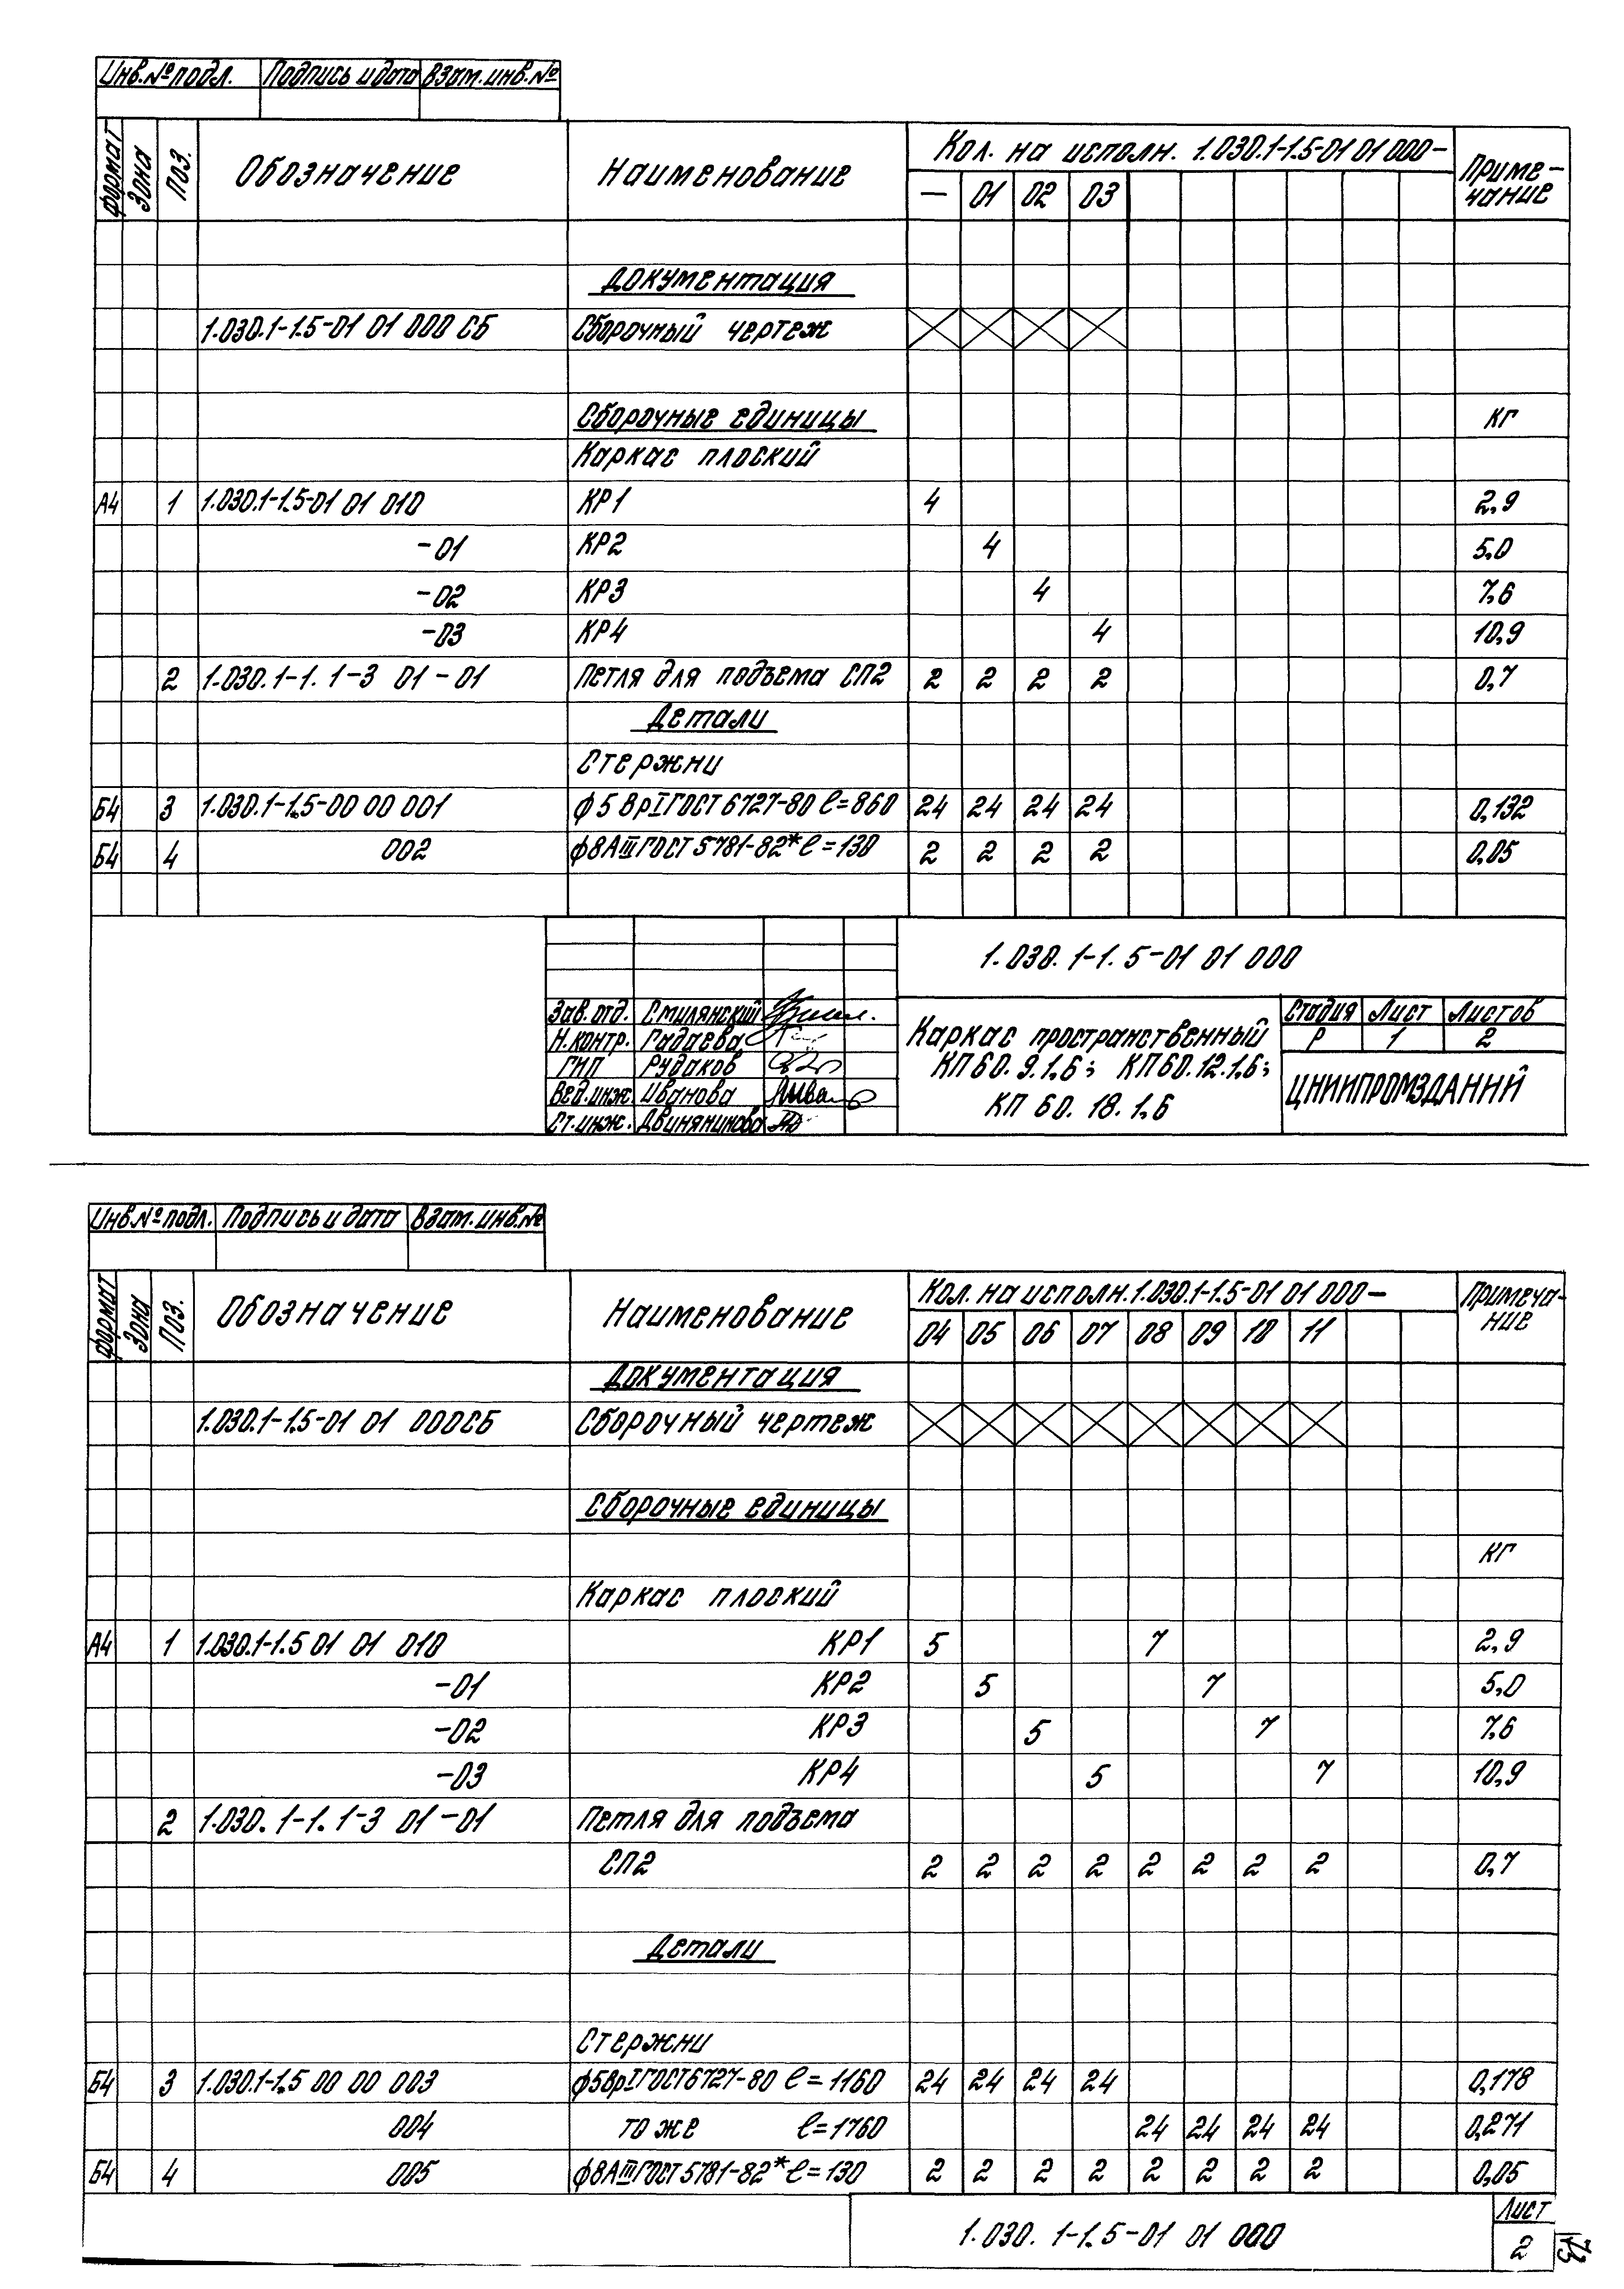 Инв.№ подл. Подпись и дата Взам. инв. №
формат Зона Поз. Обозначение Наименование Кол. на исполн. 1.030.1-1.5-01 01 000- Приме-чание
— 01 02 03
Документация
1.030.1-1.5-01 01 000 СБ Сборочный чертеж
Сборочные единицы кг
Каркас плоский
А4 1 1.030.1-1.5-01 01 010 КР1 4 2,9
-01 КР2 4 5,0
-02 КР3 4 7,6
-03 КР4 4 10,9
2 1.030.1-1.1-3 01-01 Петля для подъема СП2 2 2 2 2 0,7
Детали
Стержни
Б4 3 1.030.1-1.5-00 00 001 ф5ВрI ГОСТ 6727-80 ℓ=860 24 24 24 24 0,132
Б4 4 002 ф8АIII ГОСТ 5781-82* ℓ=130 2 2 2 2 0,05
1.030.1-1.5-01 01 000
Зав. отд. Смилянский
Н.контр. Гадаева
ГИП Рудаков
Вед.инж. Иванова
Ст.инж. Двинянинова
Каркас пространственный
КП 60.9.1.6; КП 60.12.1.6;
КП 60.18.1.6
Стадия Лист Листов
Р 1 2
ЦНИИПРОМЗДАНИЙ
Инв.№ подл. Подпись и дата Взам. инв.№
формат Зона Поз. Обозначение Наименование Кол. на исполн. 1.030.1-1.5-01 01 000— Примеча-ние
04 05 06 07 08 09 10 11
Документация
1.030.1-1.5-01 01 000СБ Сборочный чертеж
Сборочные единицы
кг
Каркас плоский
А4 1 1.030.1-1.5 01 01 010 КР1 5 7 2,9
-01 КР2 5 7 5,0
-02 КР3 5 7 7,6
-03 КР4 5 7 10,9
2 1.030.1-1.1-3 01-01 Петля для подъема
СП2 2 2 2 2 2 2 2 2 0,7
Детали
Стержни
Б4 3 1.030.1-1.5 00 00 003 ф5ВрI ГОСТ 6727-80 ℓ=1160 24 24 24 24 0,178
004 то же ℓ=1760 24 24 24 24 0,271
Б4 4 005 ф8АIII ГОСТ 5781-82* ℓ=130 2 2 2 2 2 2 2 2 0,05
1.030.1-1.5-01 01 000
Лист
2